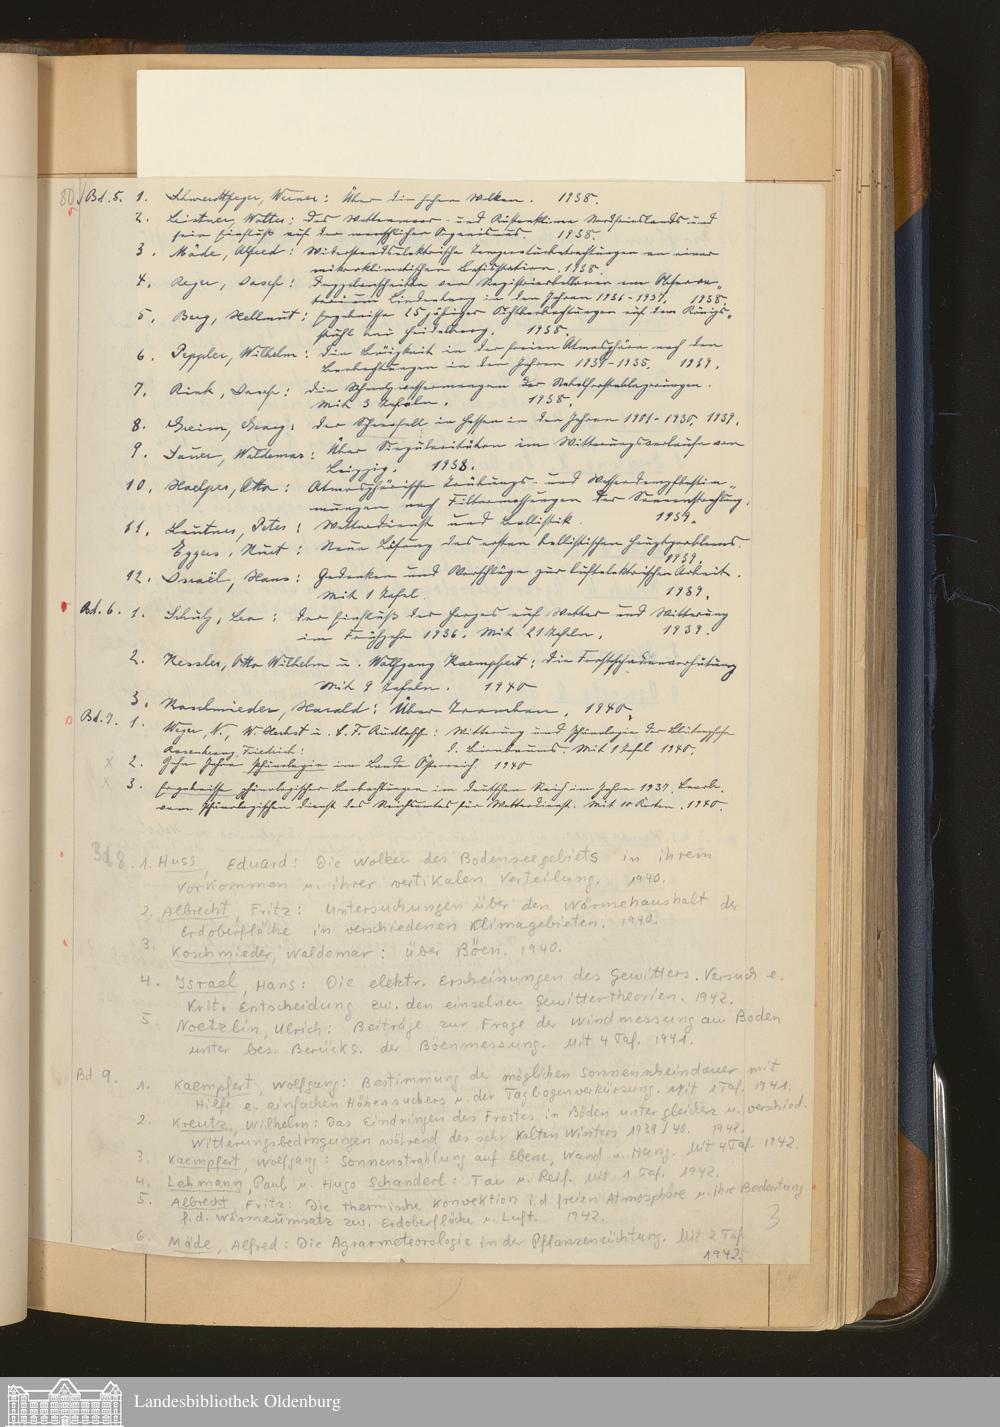 80 Bd. 5. 1. Schwerdtfeger, Werner: Über die hohen Wolken. 1938.
2. Leistner, Walter: Das Wattenmeer- und Küstenklima Nordfrieslands und
sein Einfluß auf den menschlichen Organismus. 1938.
3. Mäde, Alfred: Widerstandselektrische Temperaturbeobachtungen an einer
mikroklimatischen Basisstation. 1938.
4. Reger, Josef: Doppelanschnitte von Registrierballonen am Observa-
torium Lindenberg in den Jahren 1936-1937. 1938.
5. Berg, Hellmut: Ergebnisse 15 jähriger Sichtbeobachtungen auf dem Königs-
stuhl bei Heidelberg. 1938.
6. Peppler, Wilhelm: Die Böigkeit in der freien Atmosphäre nach den
Beobachtungen in den Jahren 1934-1935. 1939.
7. Rink, Josef: Die Schmelzwassermengen der Nebelfrostablagerungen.
Mit 3 Tafeln. 1938.
8. Greim, Georg: Der Schneefall in Hessen in den Jahren 1901-1930. 1939.
9. Sauer, Waldemar: Über Singularitäten im Witterungsverlaufe von
Leipzig. 1938.
10. Hoelper, Otto: Atmosphärische Trübungs- und Wasserdampfbestim-
mungen nach Filtermessungen der Sonnenstrahlung.
11. Lautner, Peter: Wetterdienst und Ballistik. 1939.
Eggers, Kurt: Neue Lösung des ersten ballistischen Hauptproblems.
1939.
12. Israël, Hans: Gedanken und Vorschläge zur luftelektrischen Arbeit.
Mit 1 Tafel. 1939.
Bd. 6. 1. Schulz, Leo: Der Einfluß des Harzes auf Wetter und Witterung
im Frühjahr 1936. Mit 21 Tafeln. 1939.
2. Kessler, Otto Wilhelm u. Wolfgang Kaempfert: Die Frostschadenverhütung
Mit 9 Tafeln. 1940
3. Koschmieder, Harald: Über Tromben. 1940.
Bd. 7. 1. Weger, N., W. Herbst u. C. F. Rudloff: Witterung und Phänologie der Blütephase
d. Birnbaums. Mit 1 Tafel 1940.
2. Rosenkranz, Friedrich:
Zehn Jahre Phänologie im Lande Österreich 1940
3. Ergebnisse phänologischer Beobachtungen im Deutschen Reich im Jahre 1937. Bearb.
vom phänologischen Dienst des Reichsamtes für Wetterdienst. Mit 10 Karten. 1940.
Bd 8. 1. Huss, Eduard: Die Wolken des Bodenseegebiets in ihrem
Vorkommen u. ihrer vertikalen Verteilung. 1940.
2. Albrecht, Fritz: Untersuchungen über den Wärmehaushalt der
Erdoberfläche in verschiedenen Klimagebieten. 1940.
3. Koschmieder, Waldemar: Über Böen. 1940.
4. Israel, Hans: Die elektr. Erscheinungen des Gewitters. Versuch e.
krit. Entscheidung zw. den einzelnen Gewittertheorien. 1942.
5 Noetzlin, Ulrich: Beiträge zur Frage der Windmessung am Boden
unter bes. Berücks. der Böenmessung. Mit 4 Taf. 1941.
Bd 9. 1. Kaempfert, Wolfgang: Bestimmung der möglichen Sonnenscheindauer mit
Hilfe e. einfachen Höhensuchers u. der Tagbogenverkürzung. Mit 1 Taf. 1941.
2. Kreutz, Wilhelm: Das Eindringen des Frostes in Böden unter gleichen u. verschied.
Witterungsbedingungen während des sehr kalten Winters 1939/40. 1942.
3. Kaempfert, Wolfgang: Sonnenstrahlung auf Ebene, Wand u. Hang. Mit 4 Taf. 1942.
4. Lehmann, Paul u. Hugo Schanderl: Tau u. Reif. Mit 1 Taf. 1942.
5. Albrecht, Fritz: Die thermische Konvektion i.d. freien Atmosphäre u. ihre Bedeutung
f.d. Wärmeumsatz zw. Erdoberfläche u. Luft. 1942.
6. Mäde, Alfred: Die Agrarmeteorologie in der Pflanzenzüchtung. Mit 2 Taf
1942.
3
Landesbibliothek Oldenburg